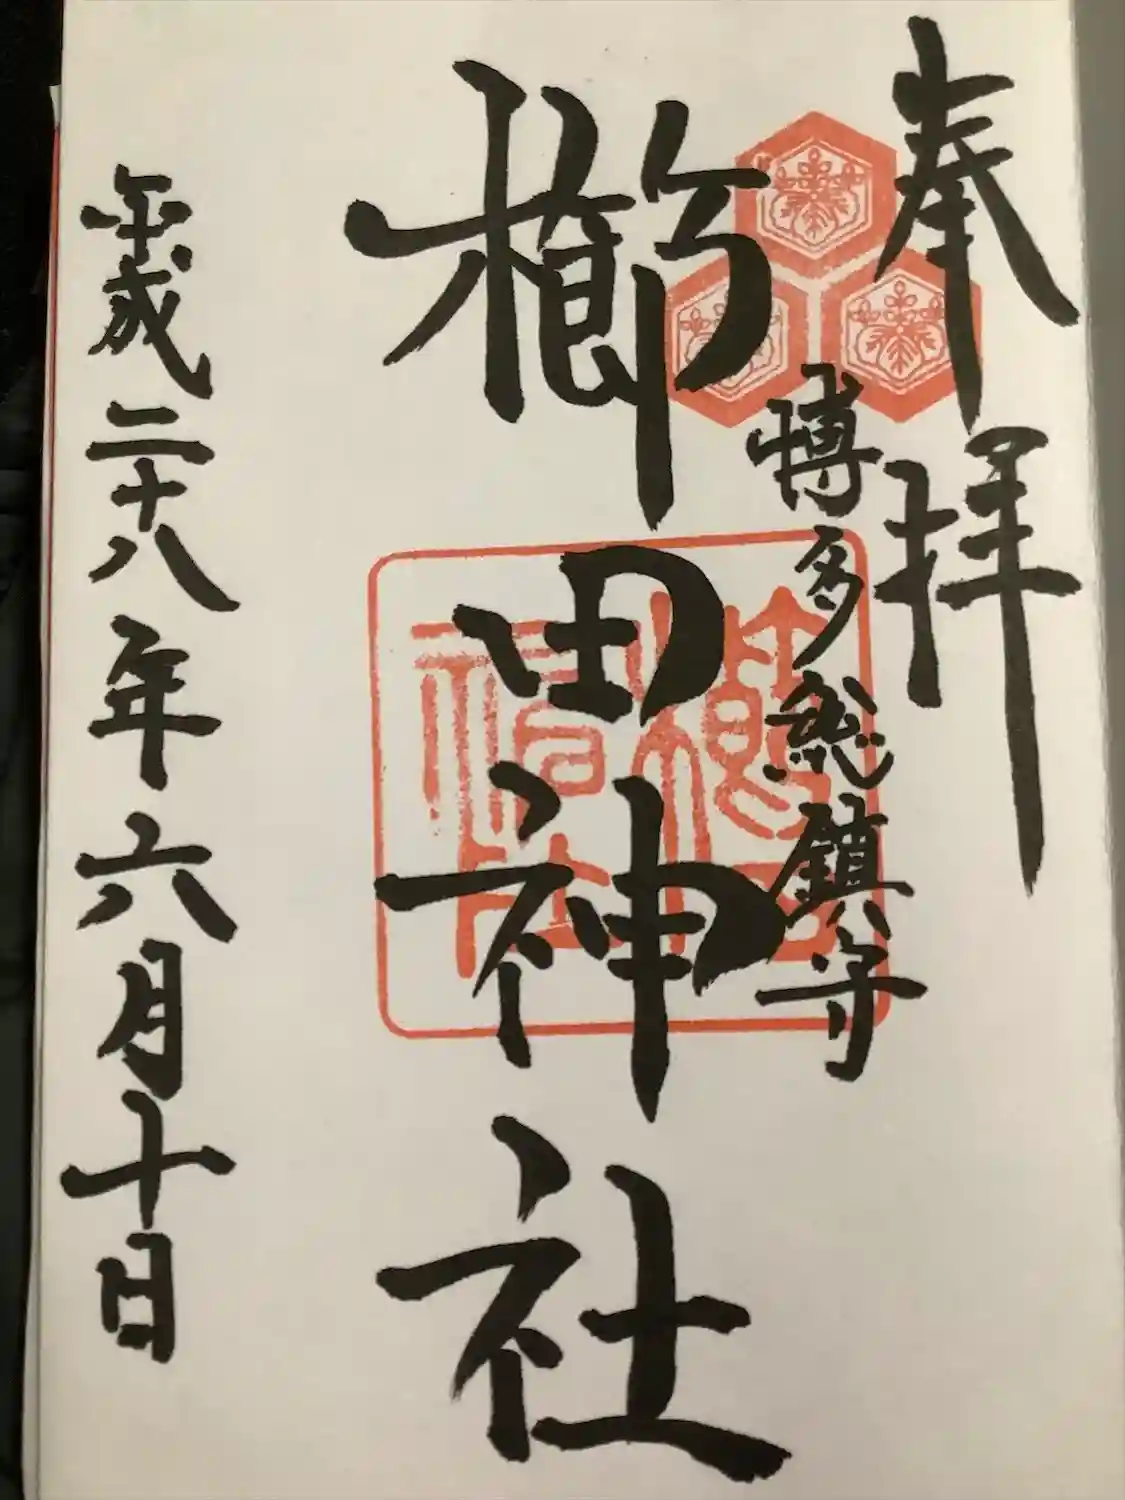 奉拝
博多総鎮守
櫛田神社
平成二十八年六月十日
櫛田
神社